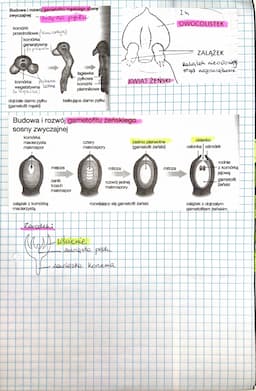 Budowa i rozwój gametofitu męskiego sosny
zwyczajnej
komórki
przedroślowe
komórka
generatywna
komórka
wegetatywna
dojrzałe ziarno pyłku
(gametofit męski)
łagiewka
pyłkowa
komórki
plemnikowe
kiełkujące ziarno pyłku
OWOCOLISTEK
ZALĄŻEK
KWIAT ŻEŃSKI
Budowa i rozwój gametofitu żeńskiego
sosny zwyczajnej
komórka
macierzysta
makrospor
mejoza
zanik
trzech
makrospor
cztery
makrospory
mitoza
rozwój jednej
makrospory
żeńskie przedrośle
(gametofit żeński)
mitoza
osłonka
zalążka
ośrodek
rodnie
z komórką
jajową
gametofit
żeński
zalążek z komórką
macierzystą
rozwijający się gametofit żeński
zalążek z dojrzałym
gametofitem żeńskim
Zarodek
liścienie
zawiązka pędu
zawiązka korzenia